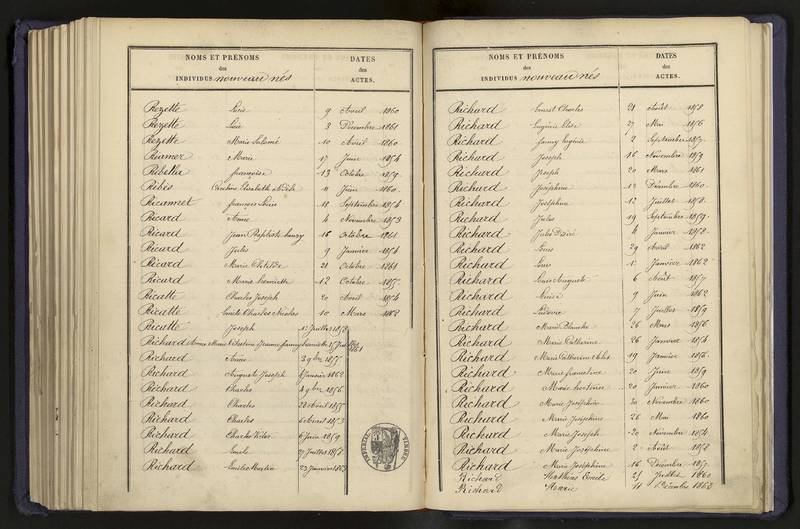 NOMS ET PRÉNOMS
des
INDIVIDUS nouveau nés
DATES
des
ACTES.
Rezette Louis 9 Avril 1860
Rezette Lucie 3 Décembre 1861
Rezette Marie Salomé 10 Avril 1860
Marie 17 Juin 1854
Ribella françoise 13 Octobre 1859
Ribès Caroline Elisabeth 11 Juin 1860
Ricannet françois Louis 18 Septembre 1854
Ricard Anne 4 Novembre 1853
Ricard Jean Baptiste 16 Octobre 1861
Ricard Jules 9 Janvier 1854
Ricard Marie Clotilde 21 Octobre 1861
Ricard Marie henriette 12 Octobre 1855
Ricatte Charles Joseph 20 Avril 1854
Ricatte Emile Charles Nicolas 10 Mars 1862
Ricatte Joseph Juillet 1858
Richard Marie Jeanne fanny 1861
Richard Anne 3 9bre 1855
Richard Auguste Joseph Janvier 1862
Richard Charles 4 9bre 1856
Richard Charles 22 Avril 1855
Richard Charles Avril 1853
Richard Charles Victor 6 Juin 1859
Richard Emile 27 Juillet 1858
Richard Emile Martin 23 Janvier 1863
NOMS ET PRÉNOMS
des
INDIVIDUS nouveau nés
DATES
des
ACTES.
Richard Ernest Charles 21 Août 1858
Richard Eugénie Elise 27 Mai 1856
Richard fanny Eugénie 2 Septembre 1857
Richard Joseph 16 Novembre 1859
Richard Joseph 20 Mars 1861
Richard Joséphine 12 Décembre 1860
Richard Joséphine 12 Juillet 1858
Richard Jules 19 Septembre 1859
Richard Jules Désiré 4 Janvier 1858
Richard Louis 29 Avril 1862
Richard Louis Janvier 1862
Richard Louis Auguste 6 Août 1857
Richard Louise 9 Juin 1862
Richard Ludovic 7 Juillet 1859
Richard Marie Blanche 26 Mars 1856
Richard Marie Catherine 26 Janvier 1854
Richard Marie Catherine 19 Janvier 1856
Richard Marie francoline 20 Juin 1859
Richard Marie hortense 20 Janvier 1860
Richard Marie Joséphine 30 Novembre 1860
Richard Marie Joséphine 26 Mai 1860
Richard Marie Joseph 20 Novembre 1854
Richard Marie Joséphine 2 Août 1858
Richard Marie Joséphine 16 Décembre 1857
Richard Mathieu Emile 25 Juillet 1860
Richard Marie 11 Décembre 1863